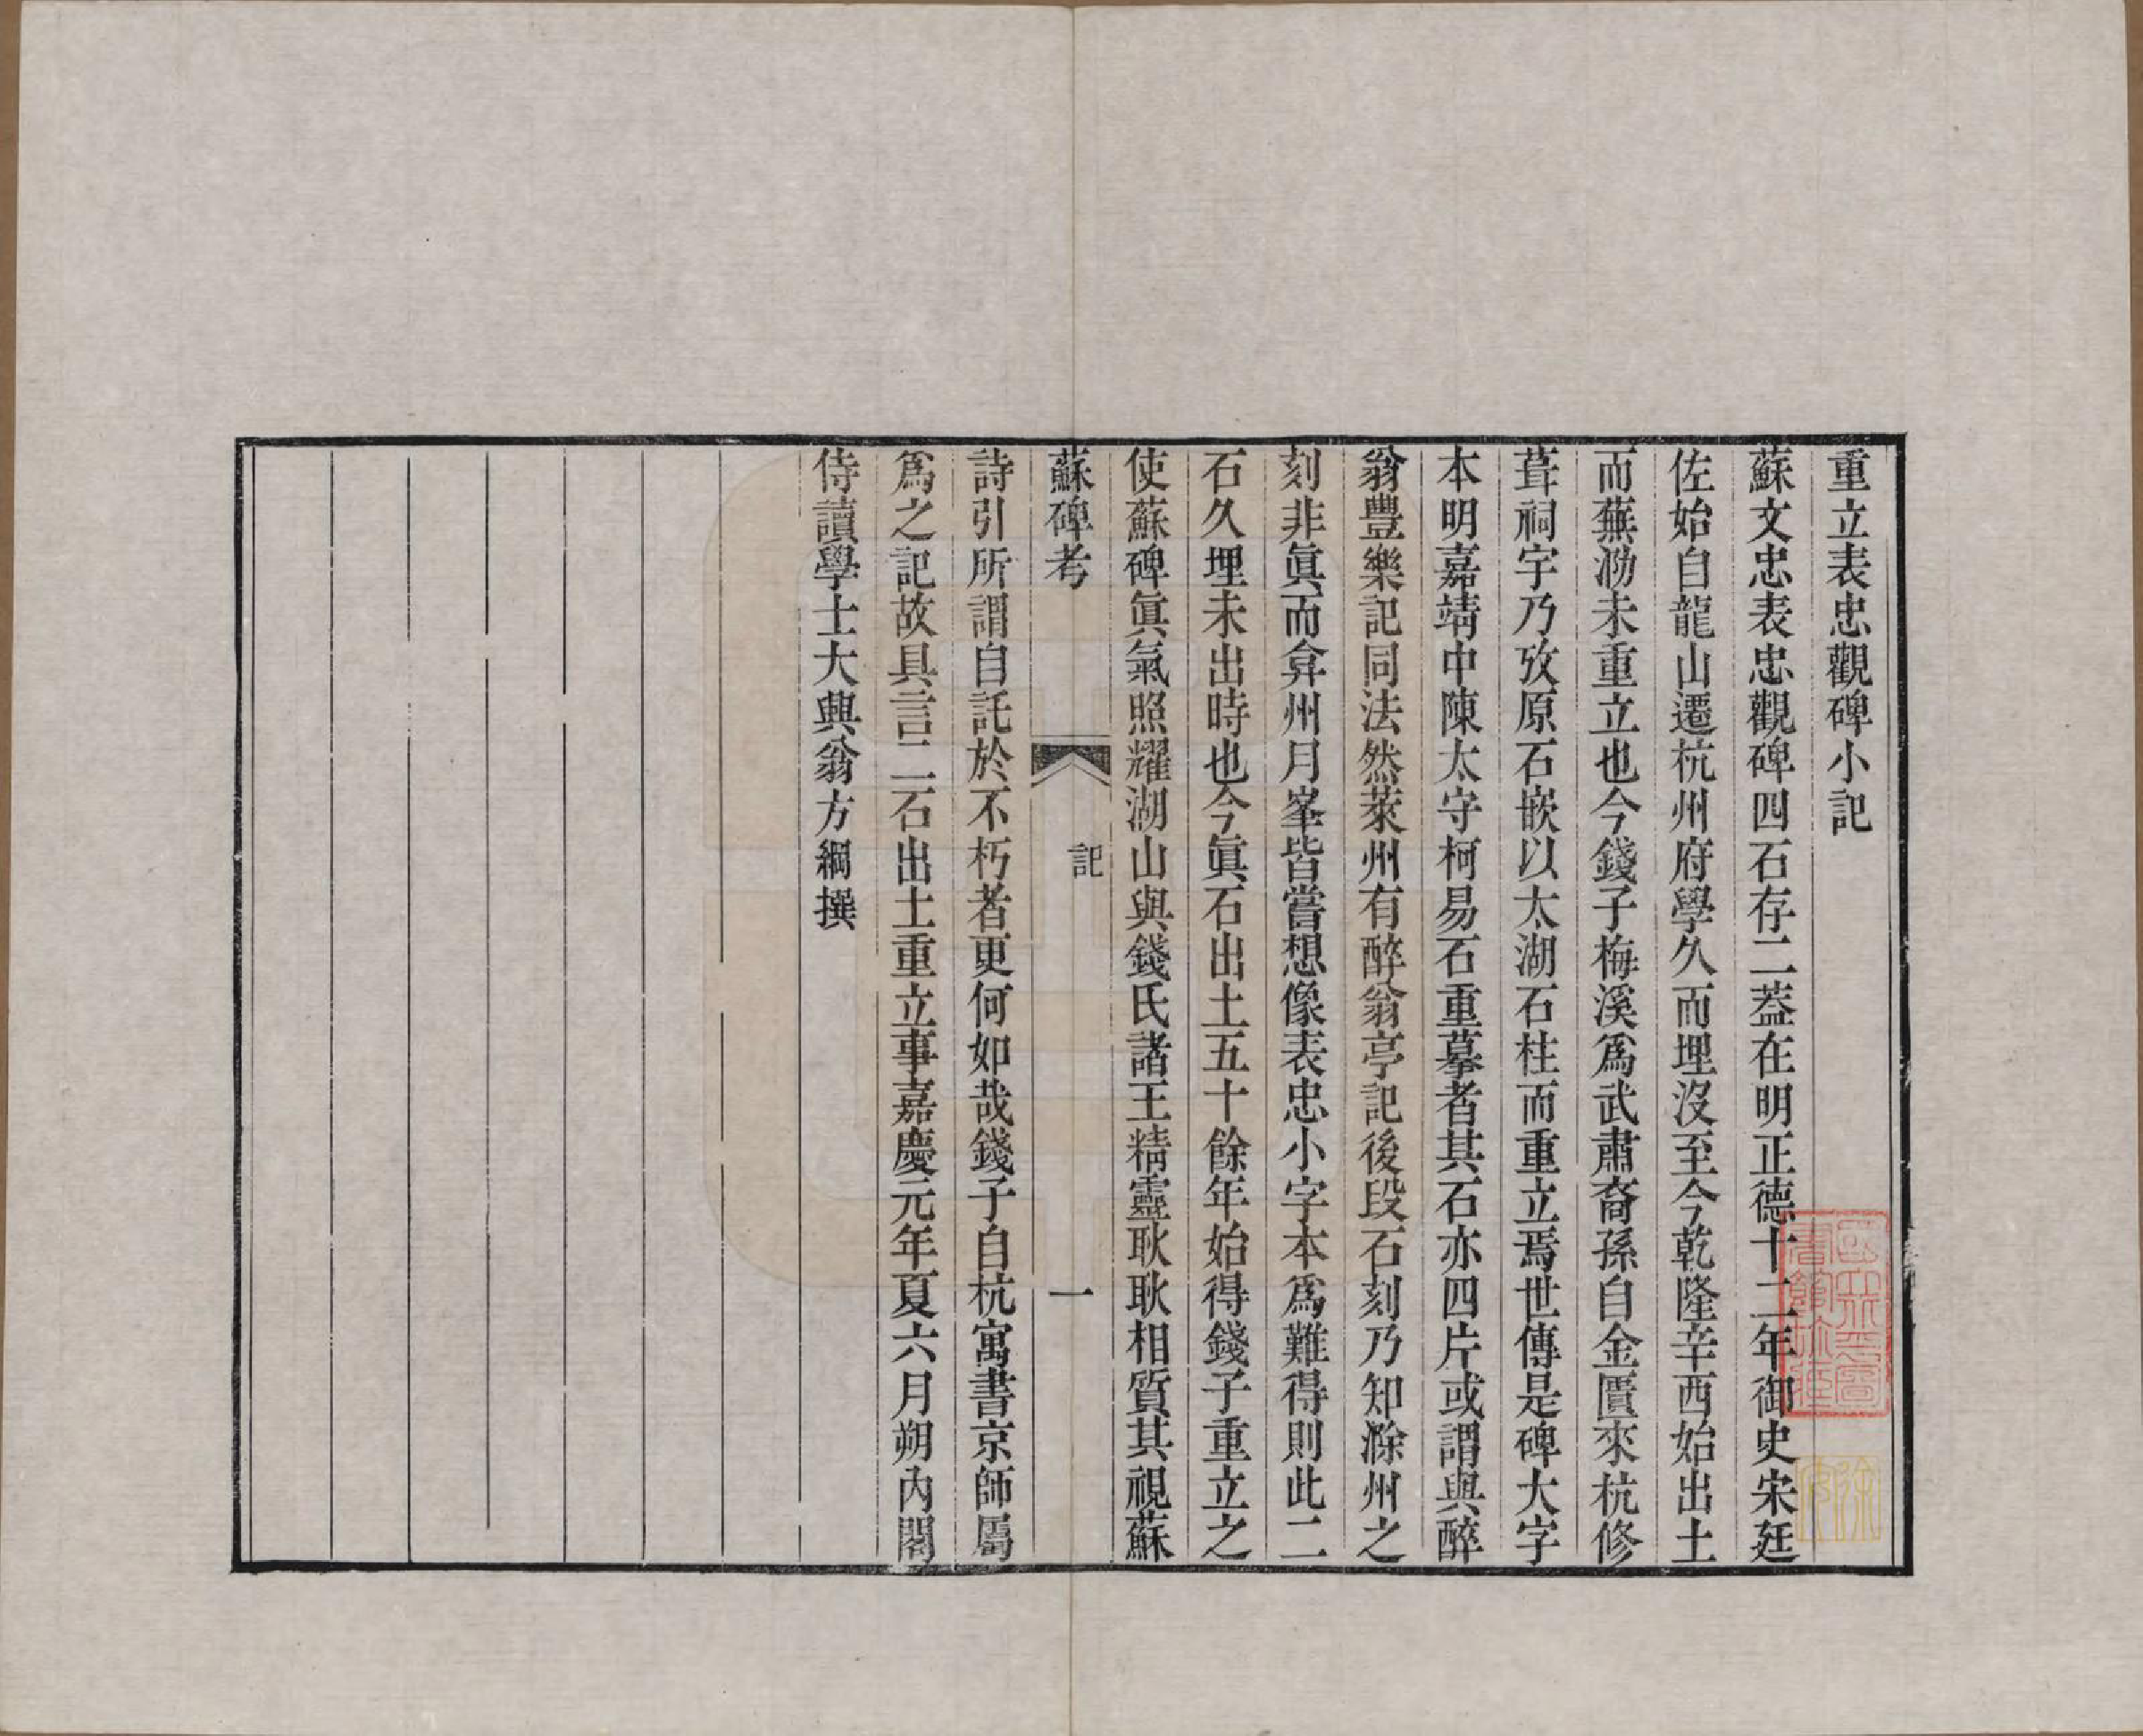 重立表忠觀碑小記
蘇文忠表忠觀碑四石存二蓋在明正德十二年御史宋廷
佐始自龍山遷杭州府學久而埋沒至今乾隆辛酉始出土
而蕪泐未重立也今錢子梅溪爲武肅裔孫自金匱來杭修
葺祠宇乃攷原石嵌以太湖石柱而重立焉世傳是碑大字
本明嘉靖中陳太守柯易石重摹者其石亦四片或謂與醉
翁豐樂記同法然萊州有醉翁亭記後段石刻乃知滁州之
刻非眞而弇州月峯皆嘗想像表忠小字本爲難得則此二
石久埋未出時也今眞石出土五十餘年始得錢子重立之
使蘇碑眞氣照耀湖山與錢氏諸王精靈耿耿相質其視蘇
蘇碑考
記
一
詩引所謂自託於不朽者更何如哉錢子自杭寓書京師屬
爲之記故具言二石出土重立事嘉慶元年夏六月朔內閣
侍讀學士大興翁方綱撰